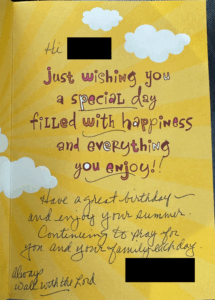 Hi
Just wishing you
a special day
filled with happiness
and everything
you enjoy!!
Have a great birthday
and enjoy your summer.
Continuing to pray for
you and your family each day.
Always
walk with the Lord